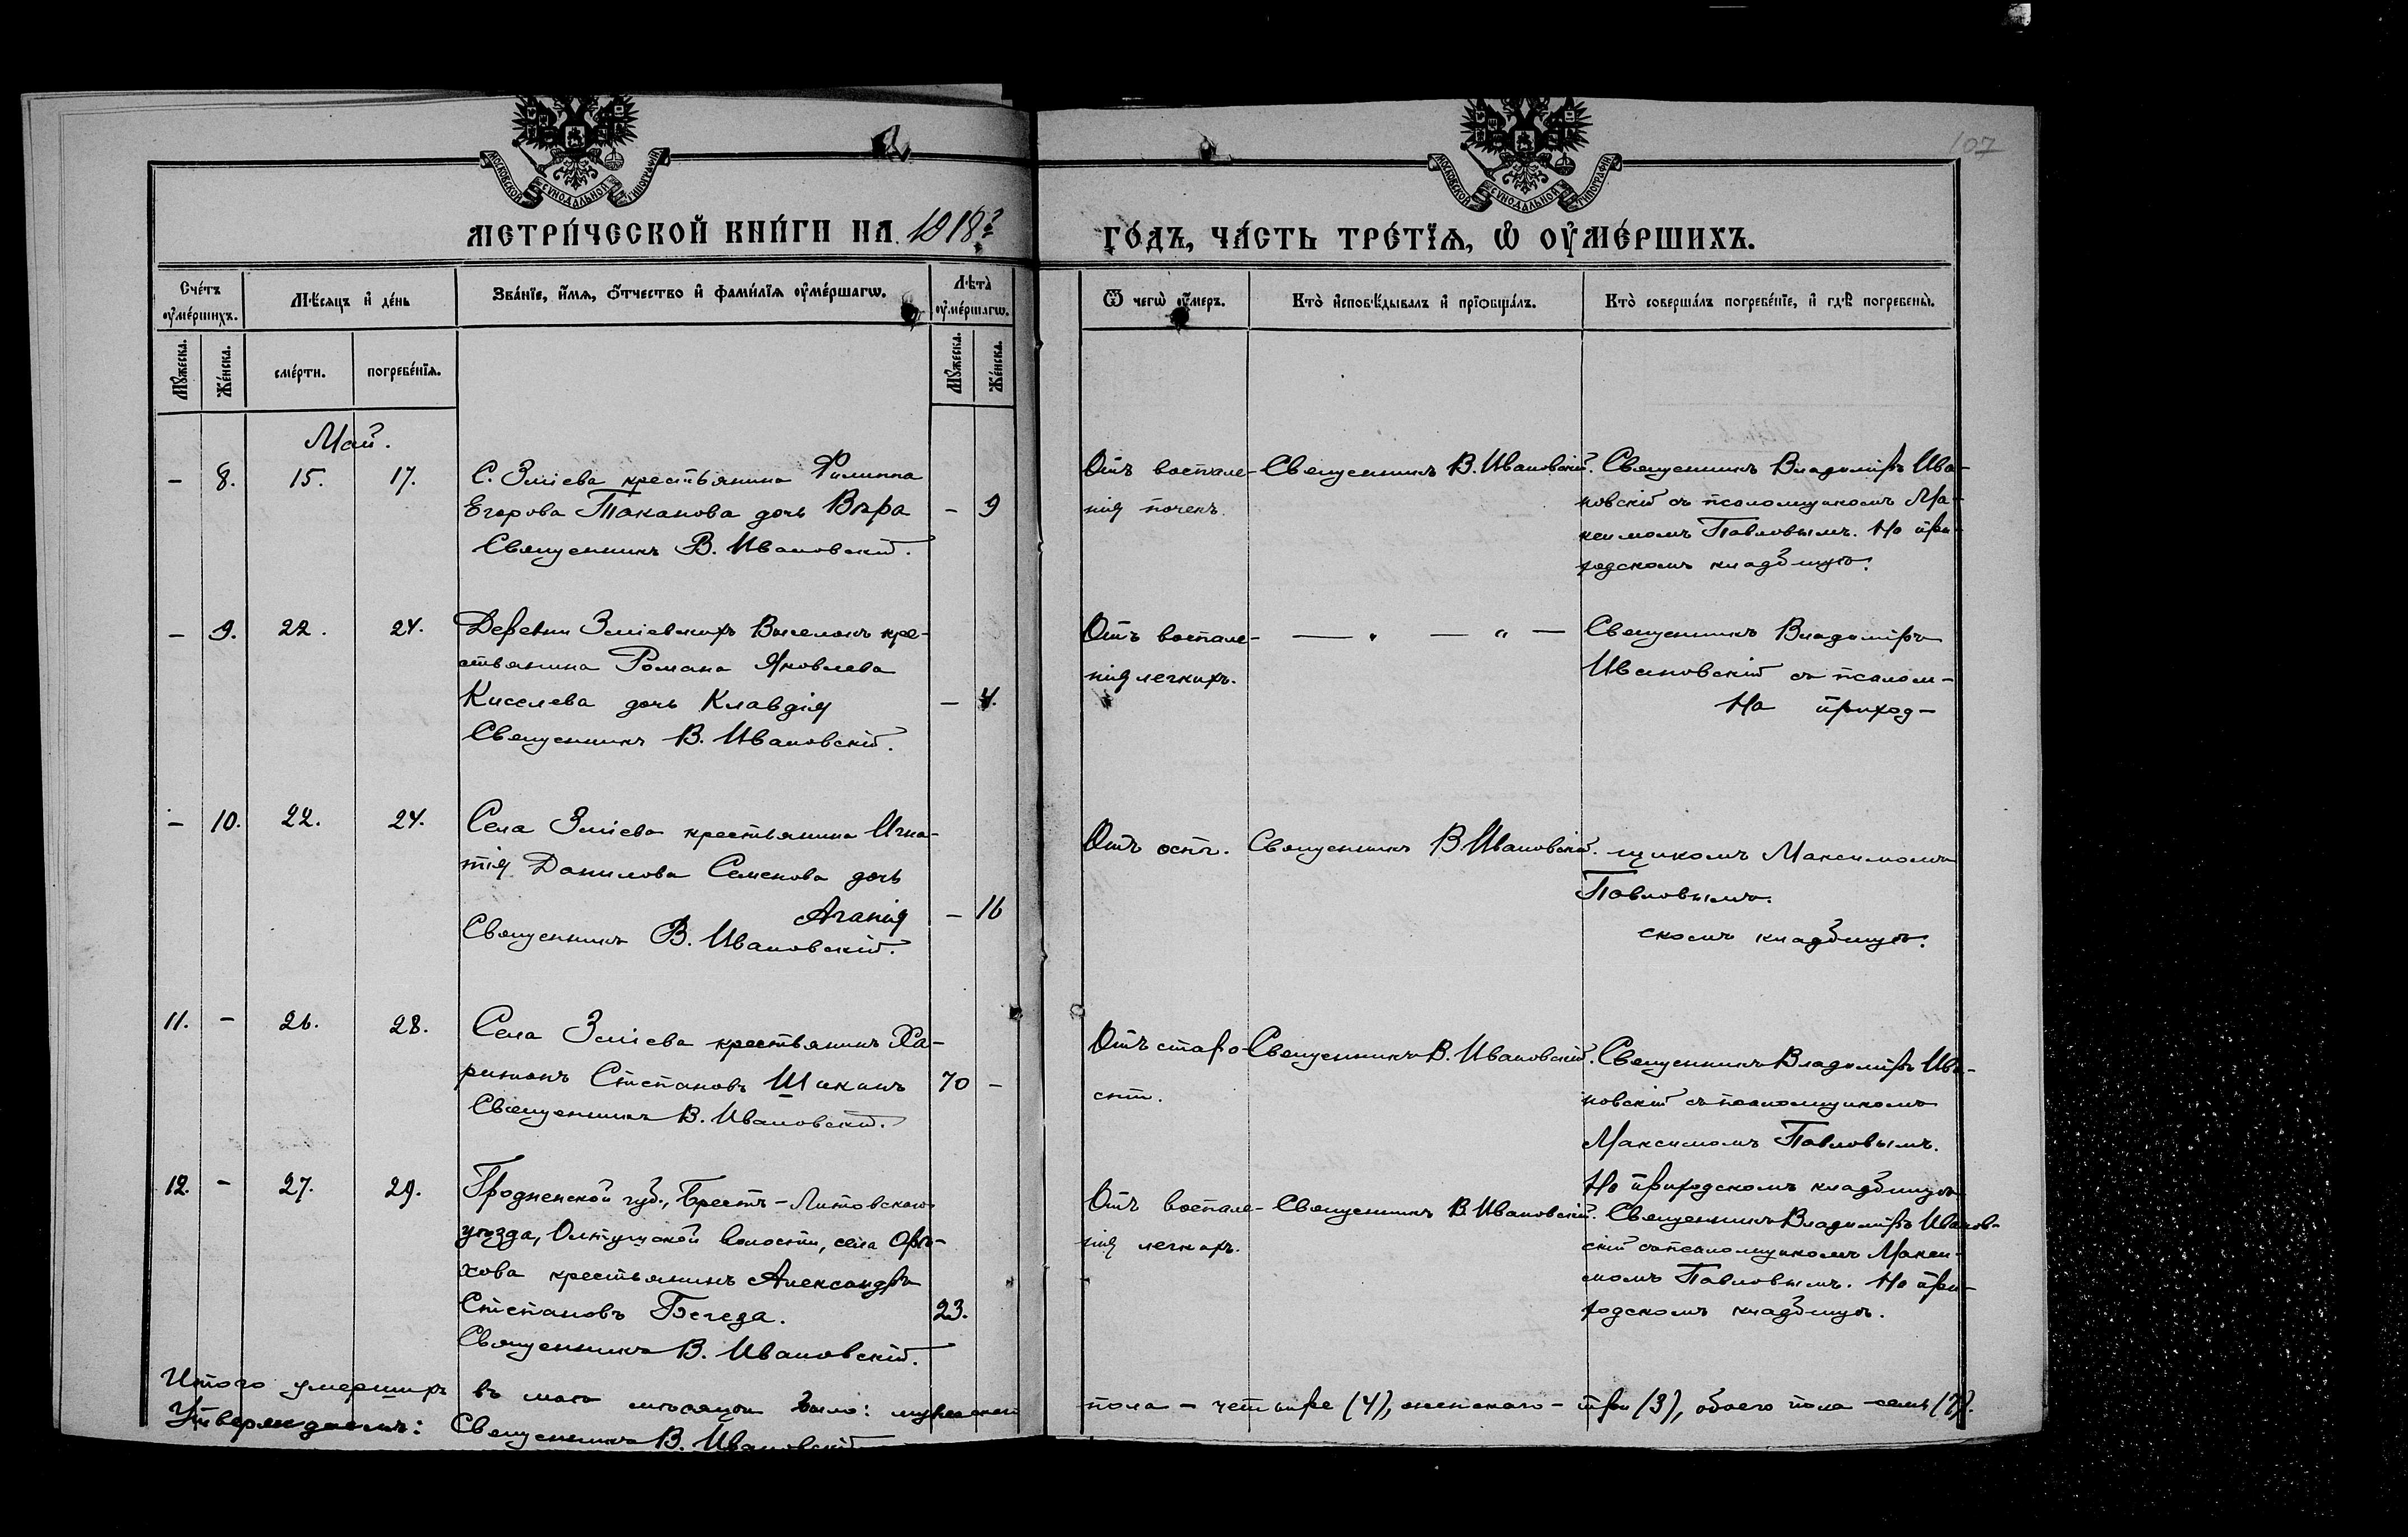 107
МОСКОВСКОЙ СѴНОДАЛЬНОЙ ТИПОГРАФІИ
МОСКОВСКОЙ СѴНОДАЛЬНОЙ ТИПОГРАФІИ
МЕТРИ́ЧЕСКОЙ КНИ́ГИ НА 1918 ГО́ДЪ, ЧА́СТЬ ТРЕ́ТЇѦ, Ѡ҆ ОУ҆МЕ́РШИХЪ.
Сче́тъ оу҆ме́ршихъ.
Мѣ́сяцъ и҆ де́нь
Зва́нїе, и҆́мѧ, ѻ҆́тчество и҆ фами́лїѧ оу҆ме́ршагѡ.
Лѣта̀ оу҆ме́ршагѡ.
Ѿ чегѡ̀ оу҆́меръ.
Кто̀ и҆сповѣ́дывалъ и҆ прїѻбща́лъ.
Кто̀ соверша́лъ погребе́нїе, и҆ гдѣ̀ погребены̀.
Мꙋ́жеска.
Же́нска.
сме́рти.
погребе́нїѧ.
Мꙋ́жеска.
Же́нска.
Май.
– 8. 15. 17.
С. Зміева крестьянина Филиппа
Егорова Таканова дочь Вѣра – 9
Священникъ В. Ивановскій.
Отъ воспале-
нія почекъ.
Священникъ В. Ивановскій.
Священникъ Владиміръ Ива-
новскій съ псаломщикомъ Ма-
ксимомъ Павловымъ. На при-
ходскомъ кладбищѣ.
– 9. 22. 24.
Деревни Зміевскихъ Выселокъ кре-
стьянина Романа Яковлева
Киселева дочь Клавдія – 4.
Священникъ В. Ивановскій.
Отъ воспале-
нія легкихъ.
— „ — „ —
Священникъ Владиміръ
Ивановскій съ псалом-
На приход-
– 10. 22. 24.
Села Зміева крестьянина Игна-
тія Данилова Семенова дочь
Агапія – 16
Священникъ В. Ивановскій.
Отъ оспы.
Священникъ В. Ивановскій.
щикомъ Максимомъ
Павловымъ.
скомъ кладбищѣ.
11. – 26. 28.
Села Зміева крестьянинъ Ха-
ритонъ Степановъ Шикинъ 70 –
Священникъ В. Ивановскій.
Отъ старо-
сти.
Священникъ В. Ивановскій.
Священникъ Владиміръ Ива-
новскій съ псаломщикомъ
Максимомъ Павловымъ.
На приходскомъ кладбищѣ
12. – 27. 29.
Гродненской губ., Брестъ-Литовскаго
уѣзда, Олтушской волости, села Орѣ-
хова крестьянинъ Александръ
Степановъ Бегеза. 23.
Священникъ В. Ивановскій.
Отъ воспале-
нія легкихъ.
Священникъ В. Ивановскій.
Священникъ Владиміръ Иванов-
скій съ псаломщикомъ Макси-
момъ Павловымъ. На при-
ходскомъ кладбищѣ.
Итого умершихъ въ маѣ мѣсяцѣ было: мужескаго пола – четыре (4), женскаго – три (3), обоего пола – семь (7).
Утверждаемъ: Священникъ В. Ивановскій